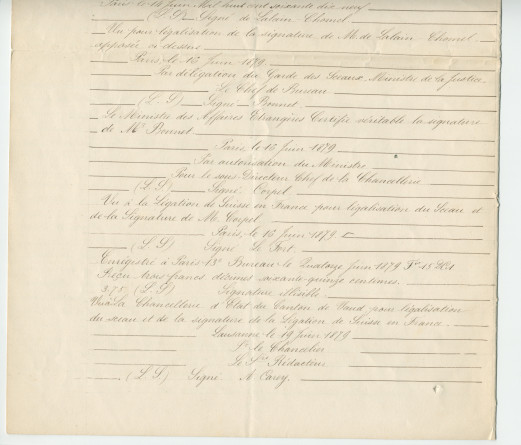 Paris le 16 Juin Mil huit cent soixante dix neuf
(L. S.) Signé de Lalain-Chomel
Vu pour légalisation de la signature de M. de Lalain-Chomel
apposée ci-dessus
Paris, le 16 Juin 1879
Par délégation du Garde des Sceaux, Ministre de la Justice
Le Chef de Bureau
(L. S.) Signé Bonnet
Le Ministre des Affaires Etrangères Certifie véritable la signature
de Mr Bonnet
Paris, le 16 Juin 1879
Par autorisation du Ministre
Pour le sous Directeur Chef de la Chancellerie
(L. S.) Signé Corpel
Vu à la Légation de Suisse en France pour légalisation du Sceau et
de la Signature de Mr. Corpel
Paris, le 16 Juin 1879
(L. S.) Signé Le Fort
Enregistré à Paris Bureau le Juin 1879 Fo 18
Reçu trois francs décimes soixante-quinze centimes
3.75 (L. S.) Signature illisible
Vu à la Chancellerie d'Etat du Canton de Vaud, pour légalisation
du sceau et de la signature de la Légation de Suisse en France
Lausanne, le 19 Juin 1879
Pr le Chancelier
Le Rédacteur
(L. S.) Signé A. Carey